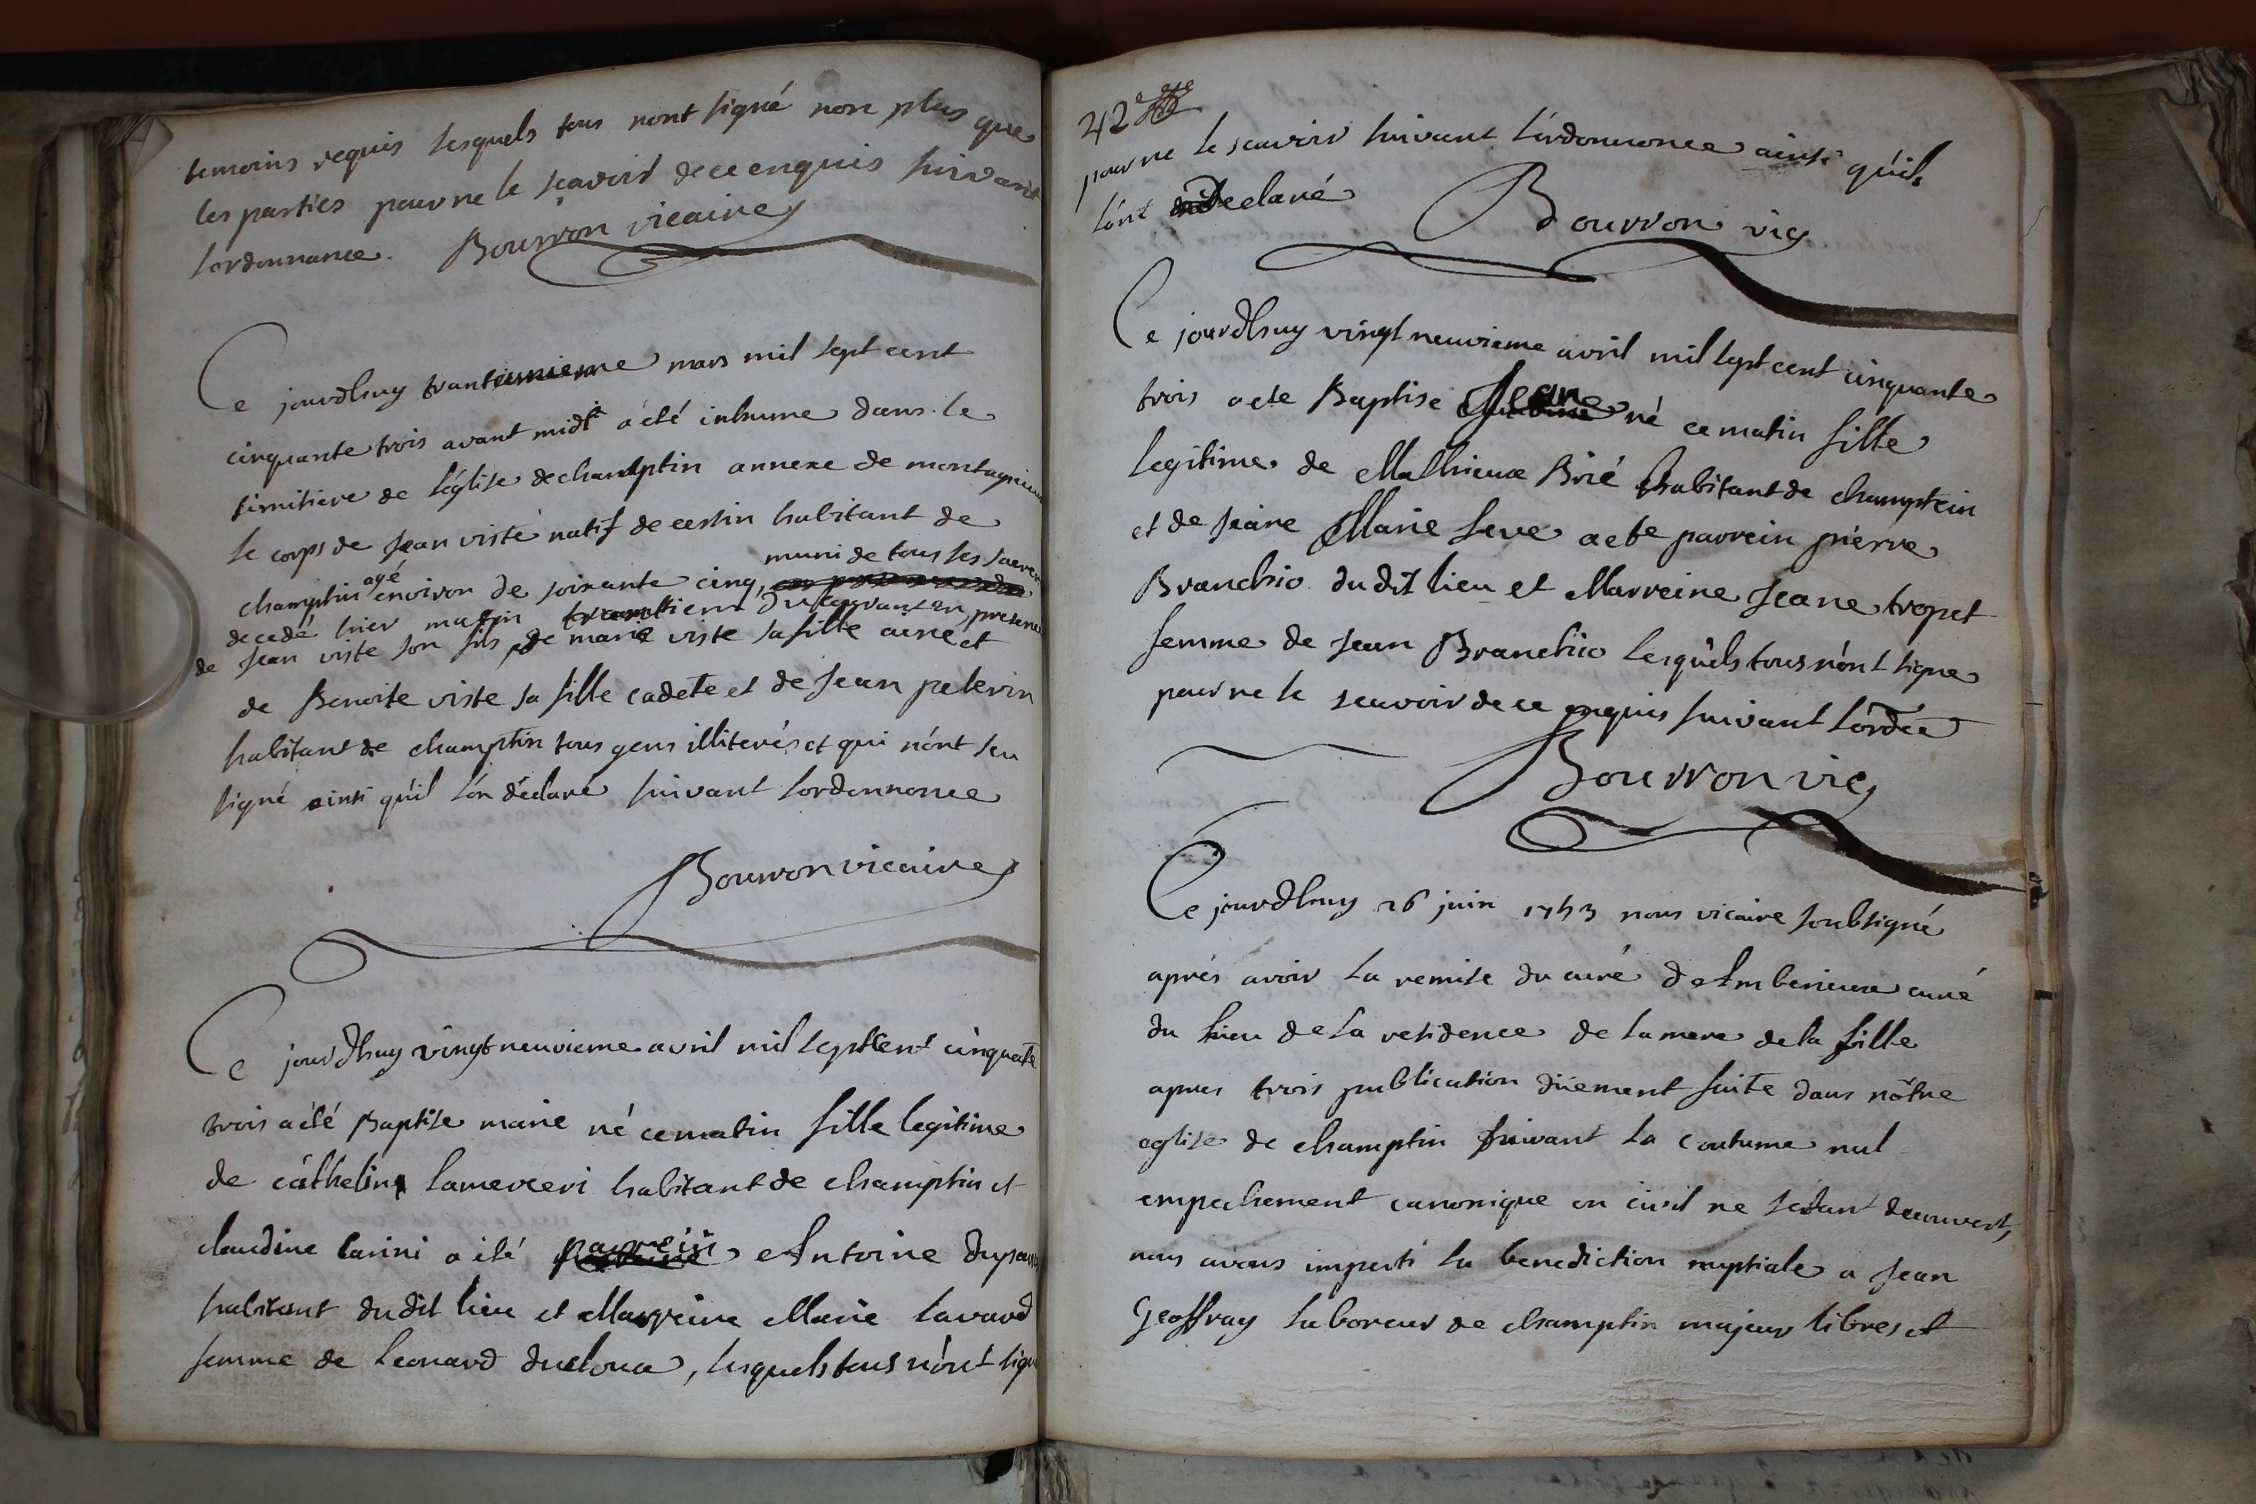 temoins requis lesquels tous nont signé non plus que
les parties pour ne le sçavoir de ce enquis suivant
lordonnance. Bourron vicaire
Ce jourdhuy trante unieme mars mil sept cent
cinquante trois avant midi a été inhume dans le
simitiere de léglise de champtin annexe de montagnieux
le corps de Jean viste natif de certin habitant de
champtin agé environ de soixante cinq, muni de tous les sacrem
decedé hier matin trantieme du courant en presence
de Jean viste son fils de marie viste sa fille ainé et
de Benoite viste sa fille cadete et de Jean pelerin
habitant de champtin tous gens illiterés et qui nónt seu
signé ainsi quíl lón déclaré suivant lordonnonce
Bourron vicaire
Ce jourdhuy vingt neuvieme avril mil sept cent cinquate
trois a été Baptise marie né ce matin fille legitime
de cáthelin lamerceri habitant de champtin et
claudine carini a été parrein Antoine dupa
habitant dudit lieu et Marreine Marie lavard
femme de Leonard ducloux, lesquels tous nónt signé
42e
pour ne le scavoir suivant lórdonnonce ainsi quíls
lónt declaré Bourron vic
Ce jourdhuy vingt neuvieme avril mil sept cent cinquante
trois a ete Baptise Jeane né ce matin fille
legitime de Mathieux Brié habitant de champtein
et de Jeane Marie seve a ete parrein pierre
Branchio du dit lieu et Marreine Jeane tropet
femme de Jean Branchio lesquels tous nónt signe
pour ne le scavoir de ce enquis suivant lórdce
Bourron vic
Ce jourdhuy 26 juin 1753 nous vicaire soubsigné
aprés avoir la remise du curé de Amberieux curé
du lieu de la residence de la mere de la fille
apres trois publication düement faite dans nôtre
eglise de champtin suivant la coutume nul
empechement canonique ou civil ne sétant decouvert,
nous avons imparti la benediction nuptiale a Jean
Geoffray laboreur de champtin majeur libres et